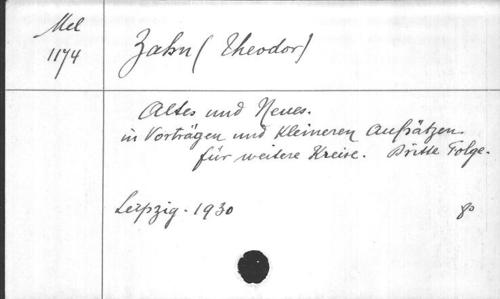 Mel
1174
Zahn (Theodor)
Altes und Neues.
in Vorträgen und Kleineren Aufsätzen
für weitere Kreise. Dritte Folge.
Leipzig. 1930 8°